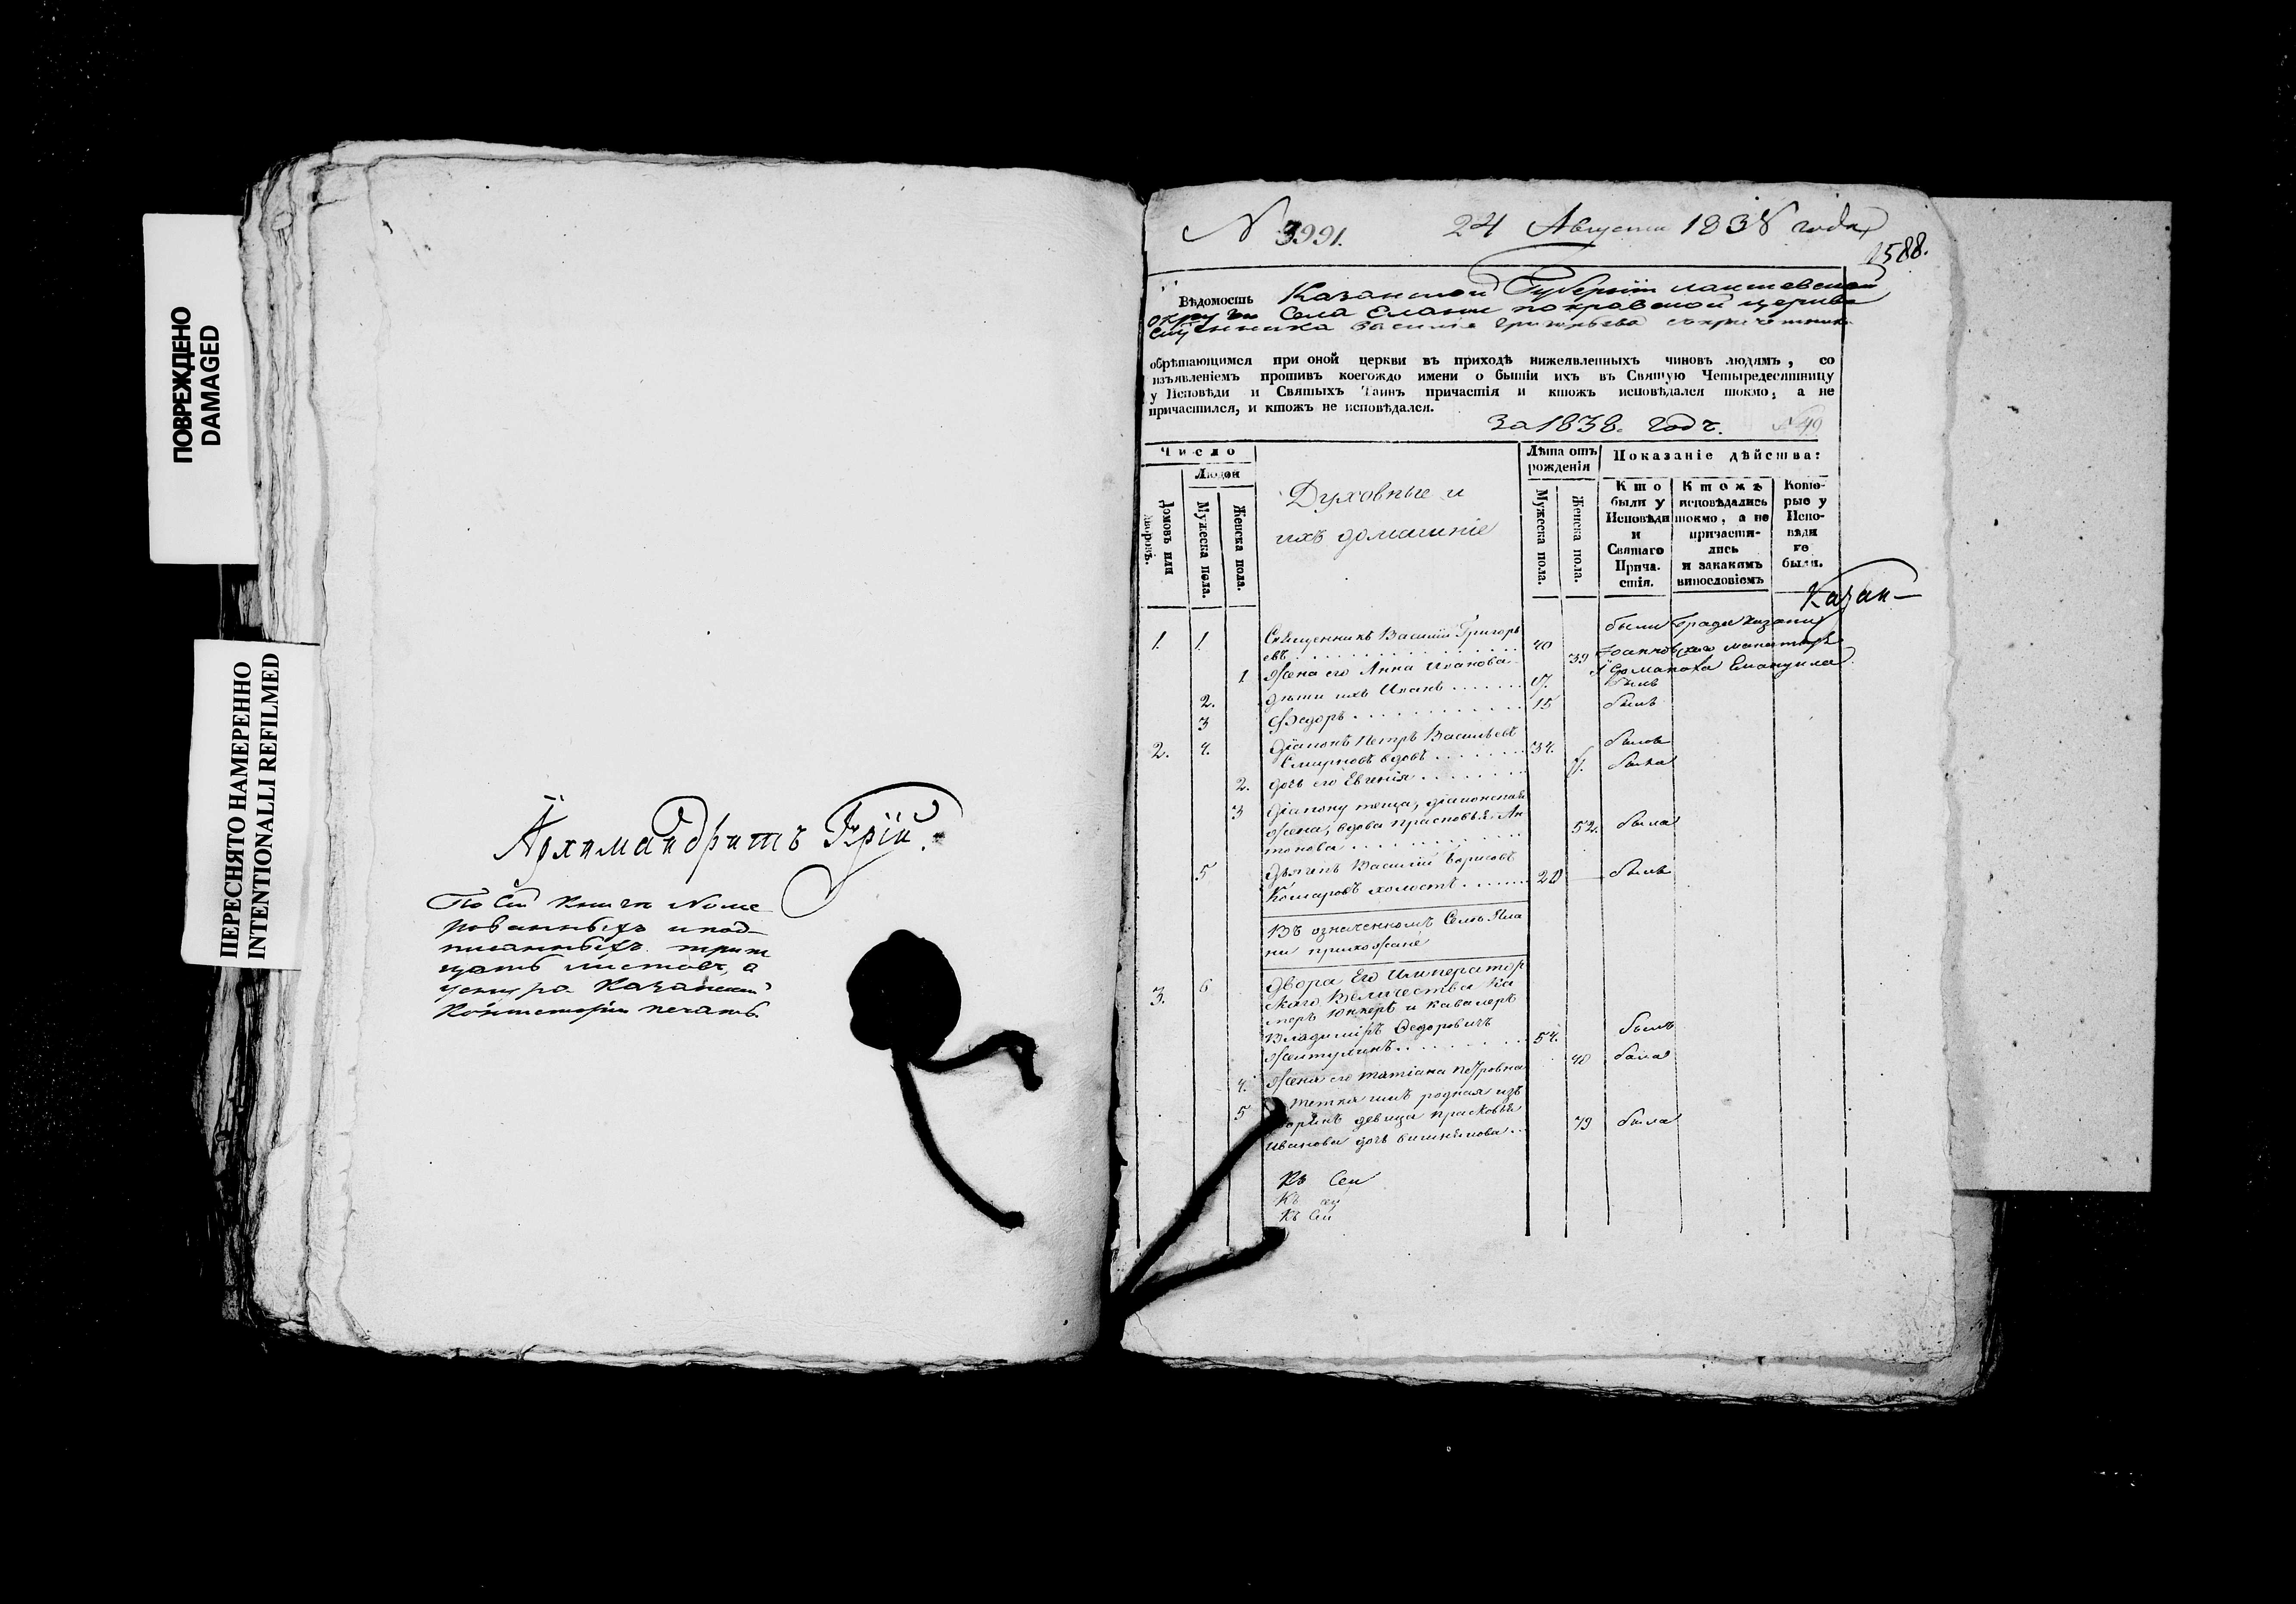 ПОВРЕЖДЕНО
DAMAGED
ПЕРЕСНЯТО НАМЕРЕННО
INTENTIONALLI REFILMED
Архимандритъ
По сей книгѣ номе
рованныхъ и под
писанныхъ трит
цать листовъ, а
Казанской
Консисторіи печать
N 3991. 24 Августа 1838 года
1588.
Вѣдомость Казанской Губерніи Лаишевской
округи Села покровской церкви
Василія Григорьева
обрѣтающимся при оной церкви въ приходѣ нижеявленныхъ чиновъ людямъ, со
изъявленіемъ противъ коегождо имени о бытіи ихъ въ Святую Четыредесятницу
у Исповѣди и Святыхъ Таинъ причастія и ктожъ исповѣдался токмо, а не
причастился, и ктожъ не исповѣдался.
за 1838. годъ. 49
Число
Людей
Домовъ или дворовъ.
Мужеска пола.
Женска пола.
Духовные и
ихъ домашніе
Лѣта отъ
рожденія
Мужеска пола.
Женска пола.
Показаніе дѣйства:
Кто
были у
Исповѣди
и
Святаго
Прича-
стія.
Ктожъ
исповѣдались
токмо, а не
причасти-
лись
и закакимъ
винословіемъ
Кото-
рые у
Испо-
вѣди
не
были.
Казан-
были Града Казани
1. 1. Священникъ Василій Григорь
евъ 40 Іоанновскаго монастыря
1 Жена его Анна Иванова 39 Іеромонаха Емануила
2. дѣти ихъ Иванъ 17. былъ
3 Ѳедоръ 15 былъ
2. 4. Діаконъ Петръ Васильевъ
Смирновъ вдовъ 34. былъ
2. дочь его Евгенія была
3 Діакону теща, діаконская
жена, вдова Прасковья Ан
тонова 52. была
5 Дьячекъ Василій Борисовъ
Комаровъ холостъ 20 былъ
Въ означенномъ Селѣ
ни прихожане
3. 6 Двора Его Император
скаго Величества Ка
меръ Юнкеръ и Кавалеръ
Владиміръ Ѳедоровичъ
Желтухинъ 54. былъ
4. Жена его Татіана Петровна 40 была
5 Тетка имъ родная изъ
дворянъ девица Прасковья
Иванова дочь 79 была
Къ Сей
Къ сей
Къ Сей